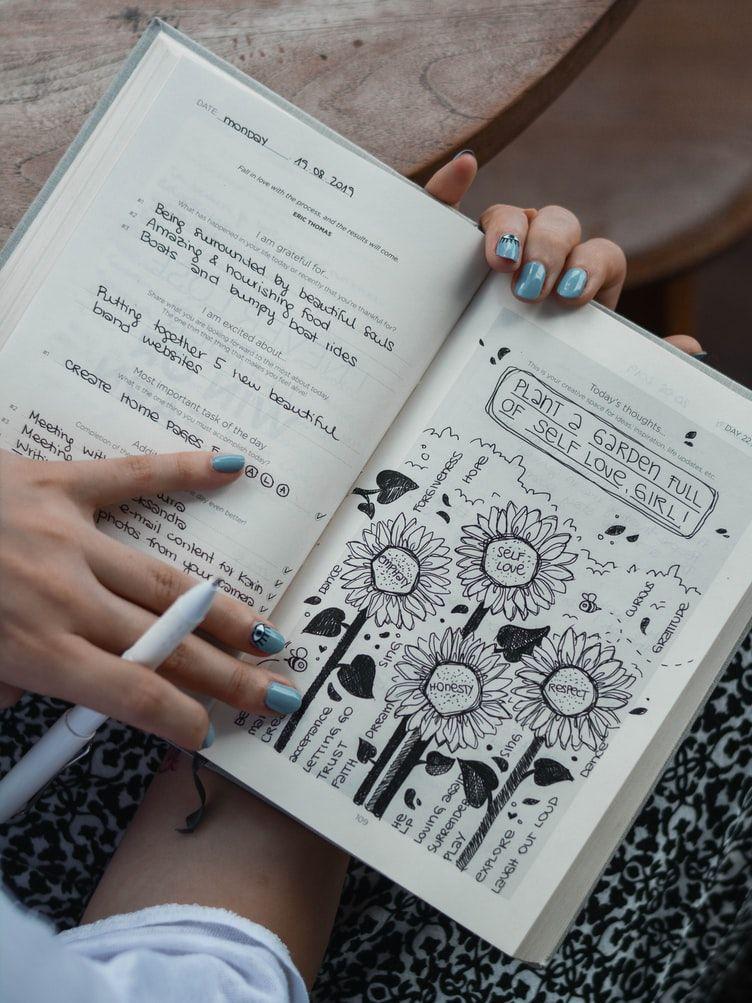 DATE monday 19.08.2019
Fall in love with the process, and the results will come.
ERIC THOMAS
I am grateful for...
What has happened in your life today or recently that you're thankful for?
#1 Being surrounded by beautiful souls
#2 Amazing & nourishing food
#3 Boats and bumpy boat rides
I am excited about...
Share what you are looking forward to the most about today.
The one thing that makes you feel alive!
Putting together 5 new beautiful
brand websites
Most important task of the day
What is the one thing you must accomplish today?
#1 create home pages
ALA
Completion of the
day even better!
#2 Meeting with
Meeting
e-mail content for Karin
photos from your camera
Today's thoughts...
This is your creative space for ideas, inspiration, life updates, etc.
DAY 22
PLANT A GARDEN FULL
OF SELF LOVE, GIRL!
FORGIVENESS
HOPE
SELF
LOVE
HONESTY
RESPECT
CURIOUS
GRATITUDE
Dance
SING
acceptance
LETTING GO
TRUST
FAITH
Dream
LOVING again
SURRENDER
PLAY
SING
Dance
EXPLORE
LaugH OUT LOUD
109